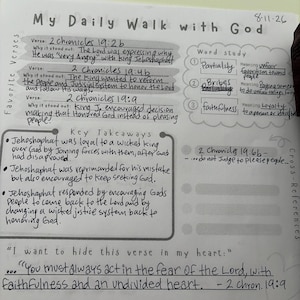 8-11-26
My Daily Walk with God
Favorite Verses
Verse 2 Chronicles 19:2b
Why it stood out The Lord was expressing why
He was "Very Angry" with King Jehoshaphat
Verse 2 Chronicles 19:4b
Why it stood out The King wanted to reform
the people and Judicial system to honor the Lord
and follow His ways.
Verse 2 Chronicles 19:9
Why it stood out King J. encouraged decision
making that Honored God instead of pleasing
people.
Word study
1 Partiality
Meaning
2 Bribes
Meaning
3 Faithfulness
Meaning Loyalty
Key Takeaways
• Jehoshaphat was loyal to a wicked king
over God by Joining forces with them, after God
had disapproved.
• Jehoshaphat was reprimanded for his mistake
but also encouraged to keep seeking God.
• Jehoshaphat responded by encouraging Gods
people to come back to the Lord and by
changing a wicked justice system back to
honoring God.
Cross References
2 Chronicles 19:6b -
... do not Judge to please people
"I want to hide this verse in my heart:"
... "You must always act in the fear of the Lord, with
faithfulness and an undivided heart. - 2 Chron. 19:9